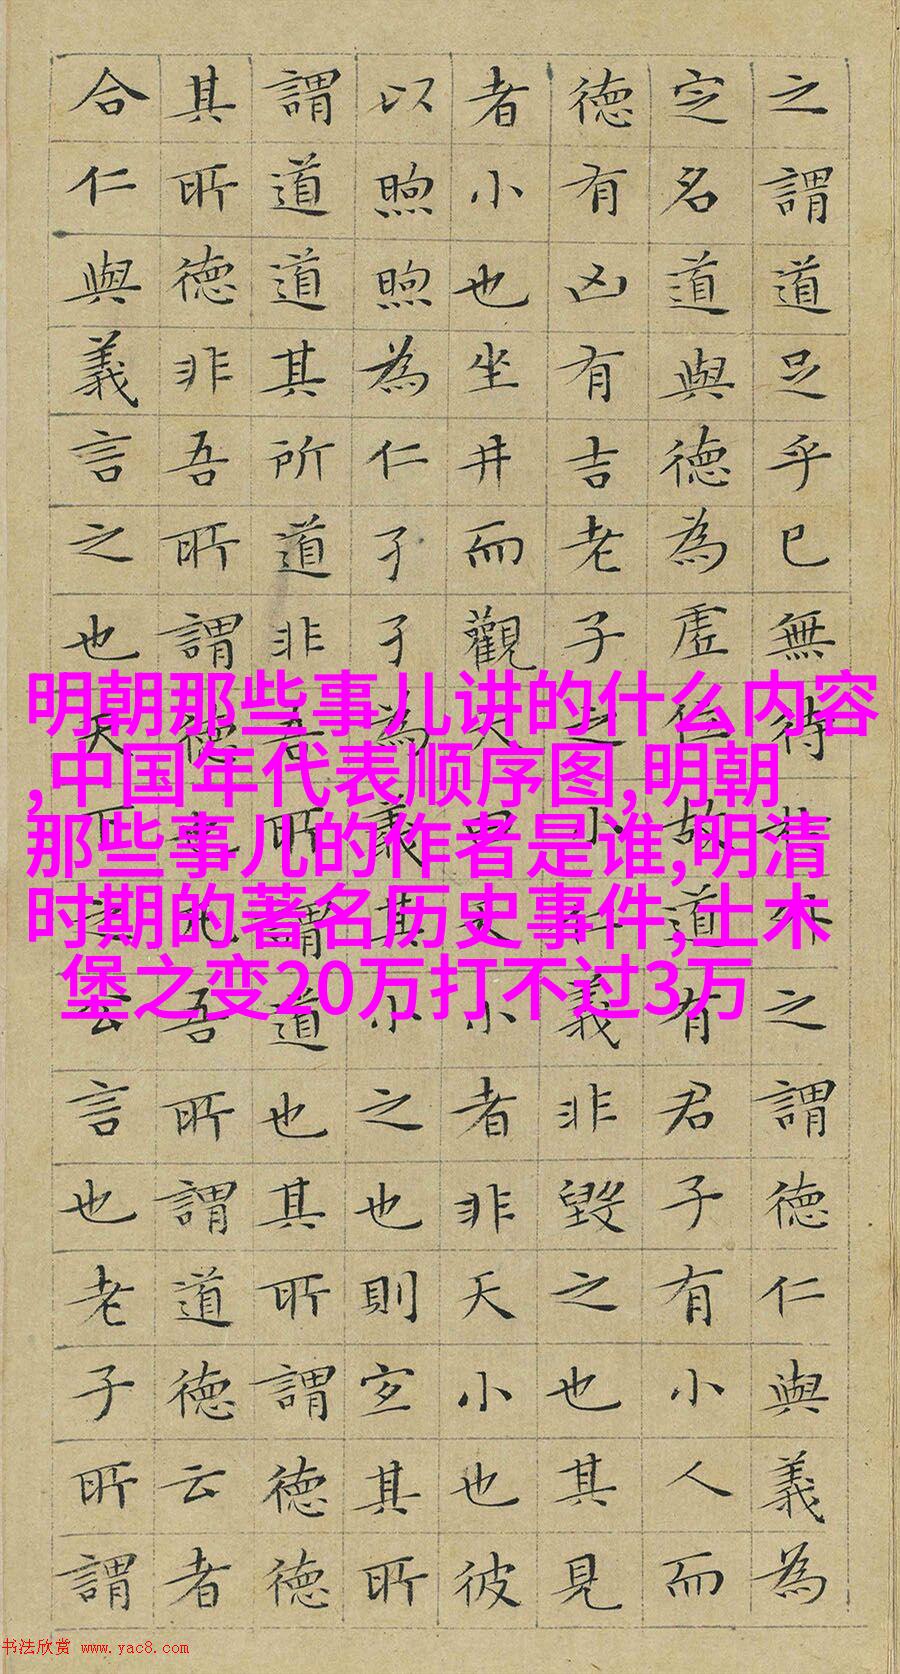 之謂道足乎已無待於外之謂德仁與義為
定名道與德為虛位故道有君子有小人而
德有凶有吉老子之小仁義非毀之也其見
者小也坐井而觀天曰天小者非天小也彼
以煦煦為仁孑孑為義其小之也則宜其所
謂道道其所道非吾所謂道也其所謂德德
其所德非吾所謂德也凡吾所謂道德云者
合仁與義言之也天下之公言也老子所謂
明朝那些事儿讲的什么内容
,中国年代表顺序图,明朝
那些事儿的作者是谁,明清
时期的著名历史事件,土木
堡之变20万打不过3万
书法欣赏 www.yac8.com